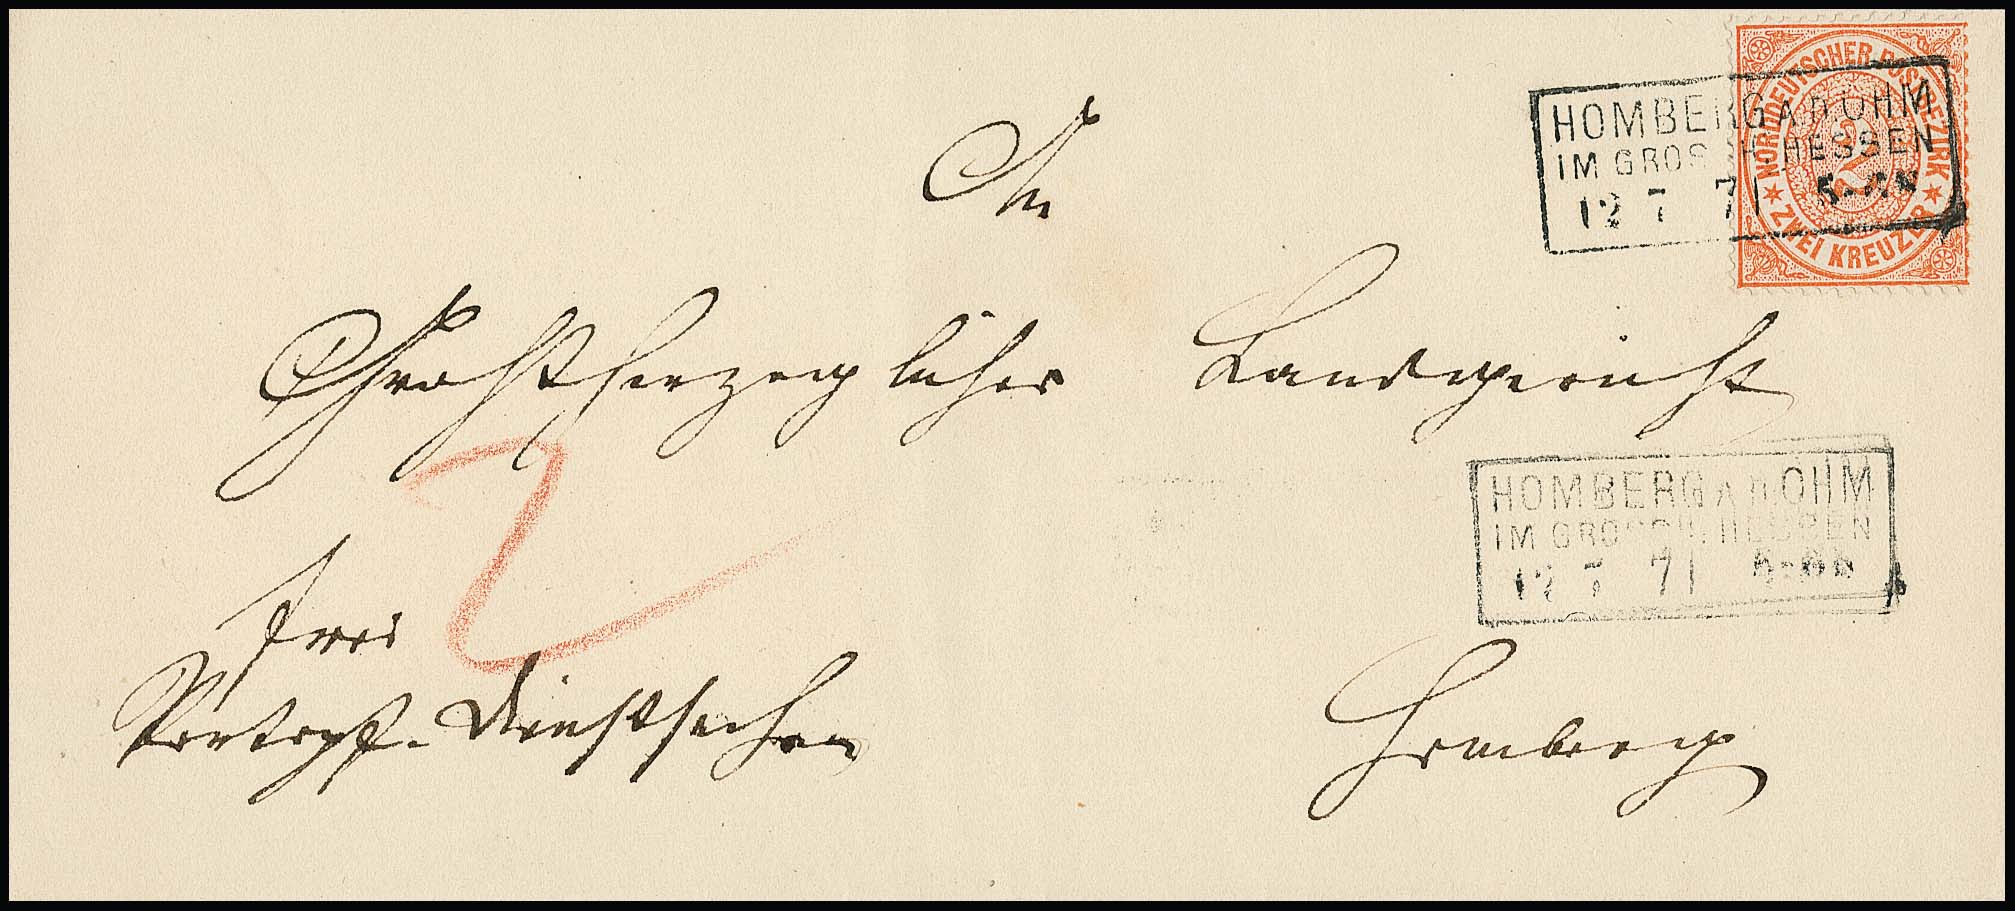 NORDDEUTSCHER POSTBEZIRK
2
ZWEI KREUZER
HOMBERG A D OHM
IM GROSSH. HESSEN
12 7 71
An
Großherzogliches Landgericht
2
HOMBERG A D OHM
IM GROSSH. HESSEN
12 7 71
frei
Portopf. Dienstsachen
Homberg